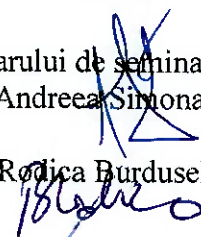 arului de semina
Andreea Simona
Rodica Burduse